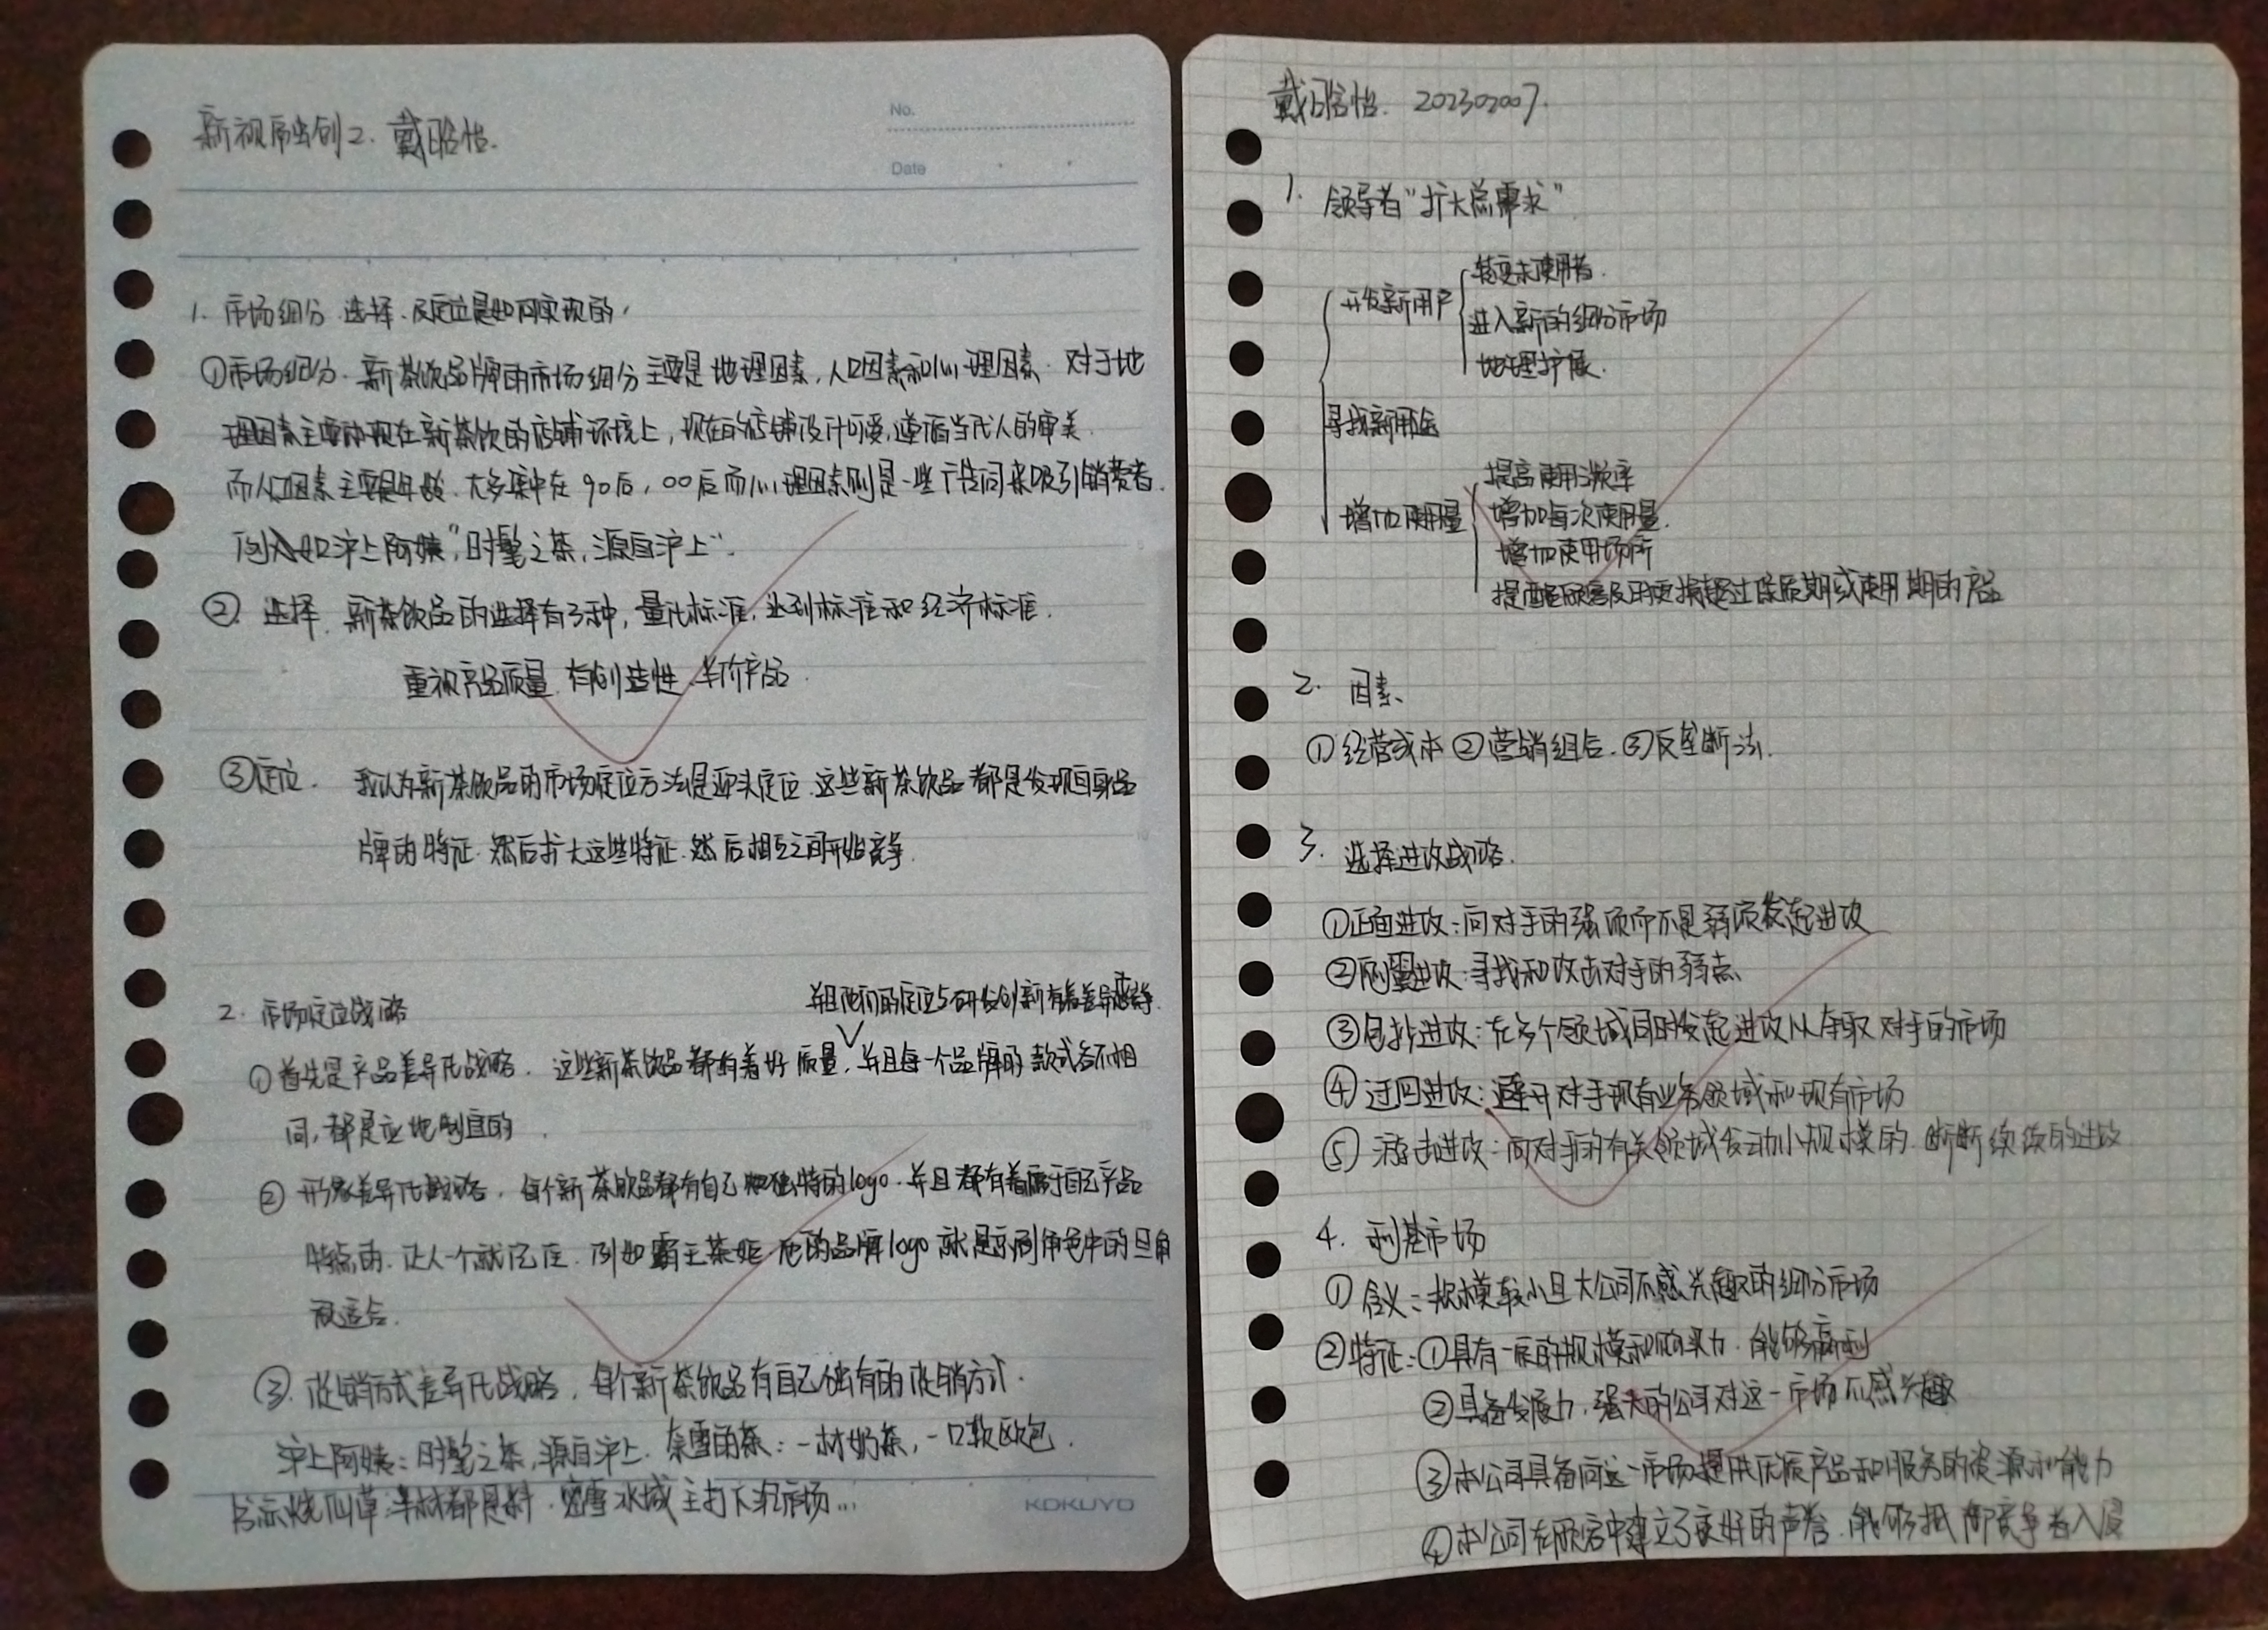 新视听出创2. 戴晗怡.
No.
Date
1. 市场细分、选择、及定位是如何实现的,
①市场细分. 新茶饮品牌的市场细分主要是地理因素,人口因素和心理因素. 对于地
理因素主要体现在新茶饮的店铺环境上,现在的店铺设计可爱,遵循当代人的审美.
而人口因素主要是年龄、大多集中在90后,00后而心理因素则是一些广告词来吸引消费者.
例如沪上阿姨“时髦之茶,源自沪上”.
② 选择. 新茶饮品的选择有3种,量化标准,达到标准和经济标准.
重视产品质量、有创造性、半价产品.
③定位. 我认为新茶饮品的市场定位方法是迎头定位.这些新茶饮品都是发现自身品
牌的特征.然后扩大这些特征.然后相互之间开始竞争.
并且他们的定位与研发创新有着差异
2. 市场定位战略
①首先是产品差异化战略. 这些新茶饮品都有着好质量,并且每一个品牌的款式各不相
同,都是应地制宜的.
② 形象差异化战略,每个新茶饮品都有自己独特的logo.并且都有着属于自己产品
特点的.让人一个就记住.例如霸王茶姬 他的品牌logo就是京剧角色中的旦角
很适合.
③. 促销方式差异化战略,每个新茶饮品有自己独有的促销方式.
沪上阿姨:时髦之茶,源自沪上. 奈雪的茶:一杯奶茶,一口软欧包.
书亦烧仙草:半杯都是料.蜜雪冰城主打下沉市场...
KOKUYO
戴晗怡. 202302007.
1. 领导者“扩大总需求”
开发新用户
转变未使用者.
进入新的细分市场
地理扩展.
寻找新用途
增加使用量
提高使用频率
增加每次使用量.
增加使用场所
提醒顾客及时更换超过保质期或使用期的产品
2. 因素、
①经营成本 ②营销组合. ③反垄断法.
3. 选择进攻战略.
①正面进攻:向对手的强项而不是弱项发起进攻
②侧翼进攻:寻找和攻击对手的弱点
③包抄进攻:在多个领域同时发起进攻以夺取对手的市场
④迂回进攻:避开对手现有业务领域和现有市场
⑤游击进攻:向对手的有关领域发动小规模的、断断续续的进攻
4. 利基市场
①含义:规模较小且大公司不感兴趣的细分市场
②特征:①具有一定的规模和购买力、能够赢利
②具备发展力,强大的公司对这一市场不感兴趣
③本公司具备向这一市场提供优质产品和服务的资源和能力
④本公司在顾客中建立了良好的声誉.能够抵御竞争者入侵